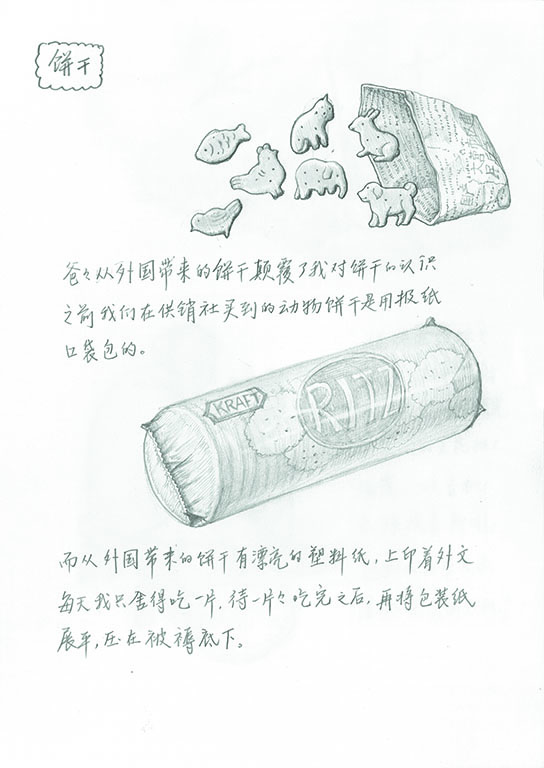 饼干
爸々从外国带来的饼干颠覆了我对饼干的认识
之前我们在供销社买到的动物饼干是用报纸
口袋包的。
KRAFT
RITZ
而从外国带来的饼干有漂亮的塑料纸，上印着外文
每天我只舍得吃一片，待一片々吃完之后，再将包装纸
展平，压在被褥底下。